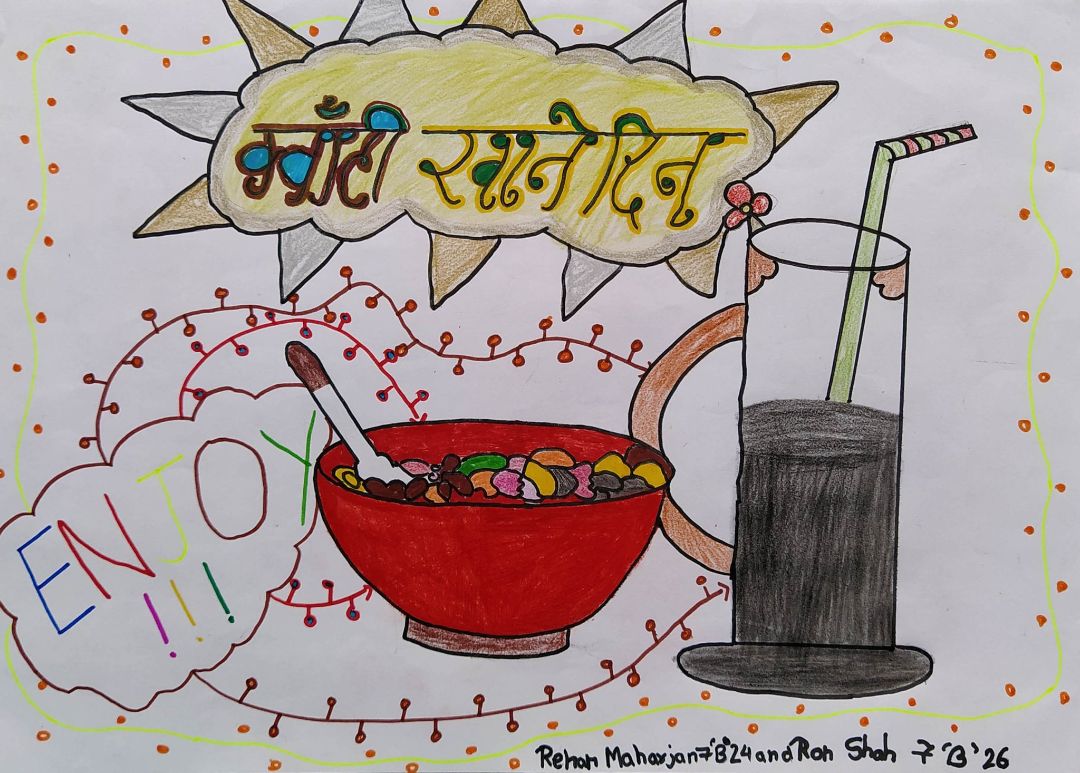 क्वाँटी खाने दिन
ENJOY
!!!
Rehan Maharjan 7'B' 24 and Ron Shah 7 'B' 26